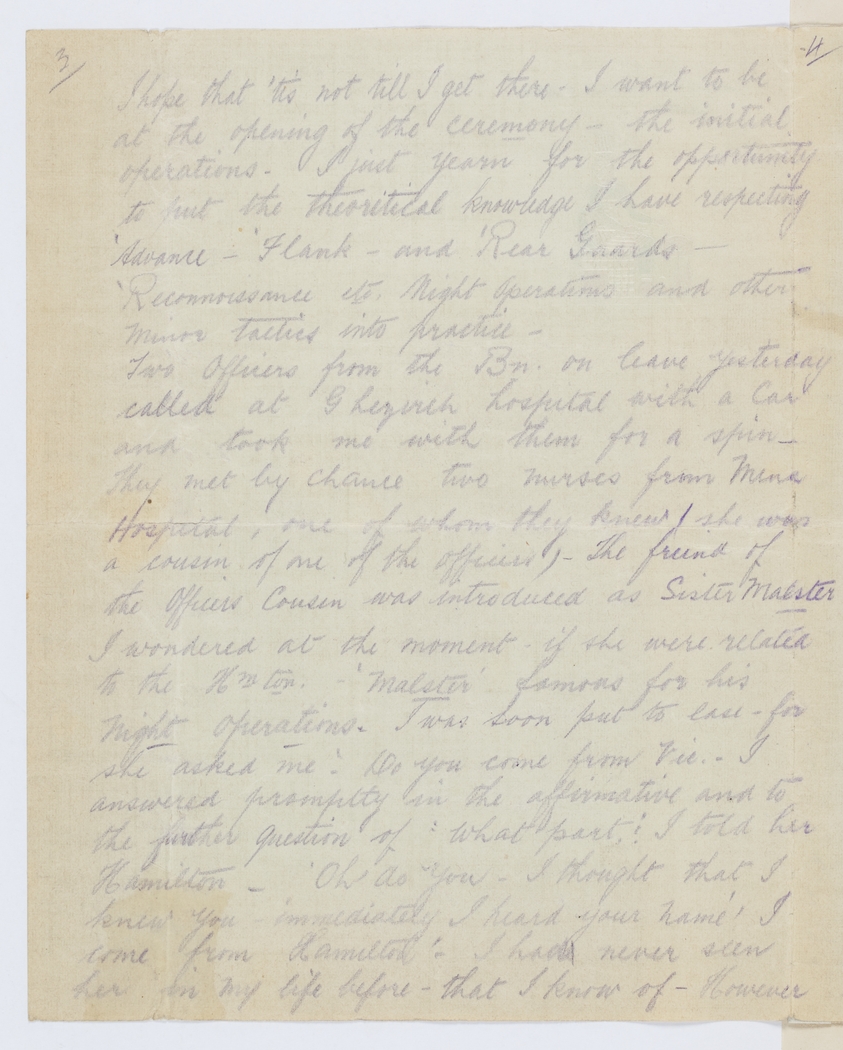 3/
4/
I hope that 'tis not till I get there - I want to be
at the opening of the ceremony - the initial
operations - I just yearn for the opportunity
to put the theoritical knowledge I have respecting
'Advance - 'Flank - and 'Rear Guards -
'Reconnoissance etc. Night Operations and other
Minor tactics into practice -
Two Officers from the Bn. on leave yesterday
called at Ghezireh hospital with a Car
and took me with them for a spin -
They met by chance two nurses from Mena
Hospital, one of whom they knew (she was
a cousin of one of the officers) - The freind of
the Officers Cousin was introduced as Sister Malster
I wondered at the moment - if she were related
to the Hmton. - 'Malster' famous for his
Night Operations. I was soon put to ease - for
she asked me: Do you come from Vic. - I
answered promptly in the affirmative and to
the further question of: what part,! I told her
Hamilton - 'Oh do you - I thought that I
knew you - immediately I heard your name' I
come from Hamilton'- I have never seen
her in my life before - that I know of - However